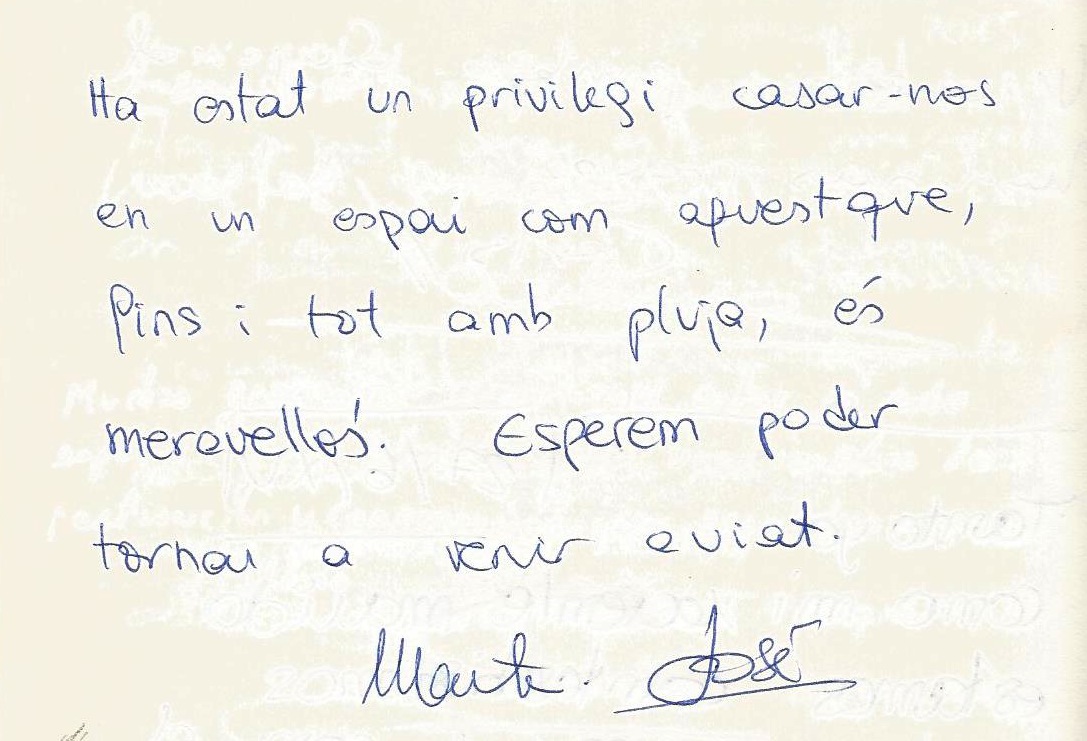 Ha estat un privilegi casar-nos
en un espai com aquest que,
fins i tot amb pluja, és
meravellós. Esperem poder
tornar a venir aviat.
José